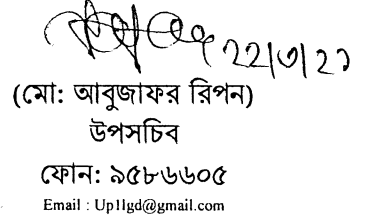 ২২/৩/২১
(মো: আবুজাফর রিপন)
উপসচিব
ফোন: ৯৫৮৬৬০৫
Email : Up1lgd@gmail.com